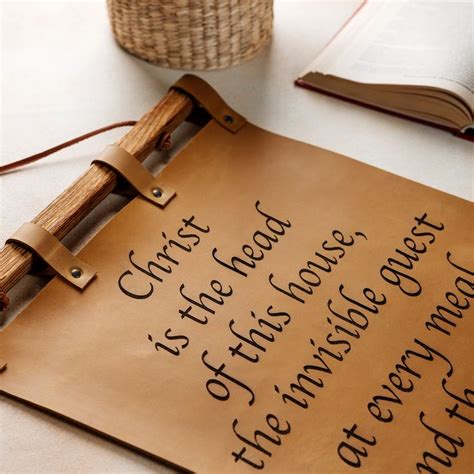 Christ
is the head
of this house,
the invisible guest
at every meal
nd th